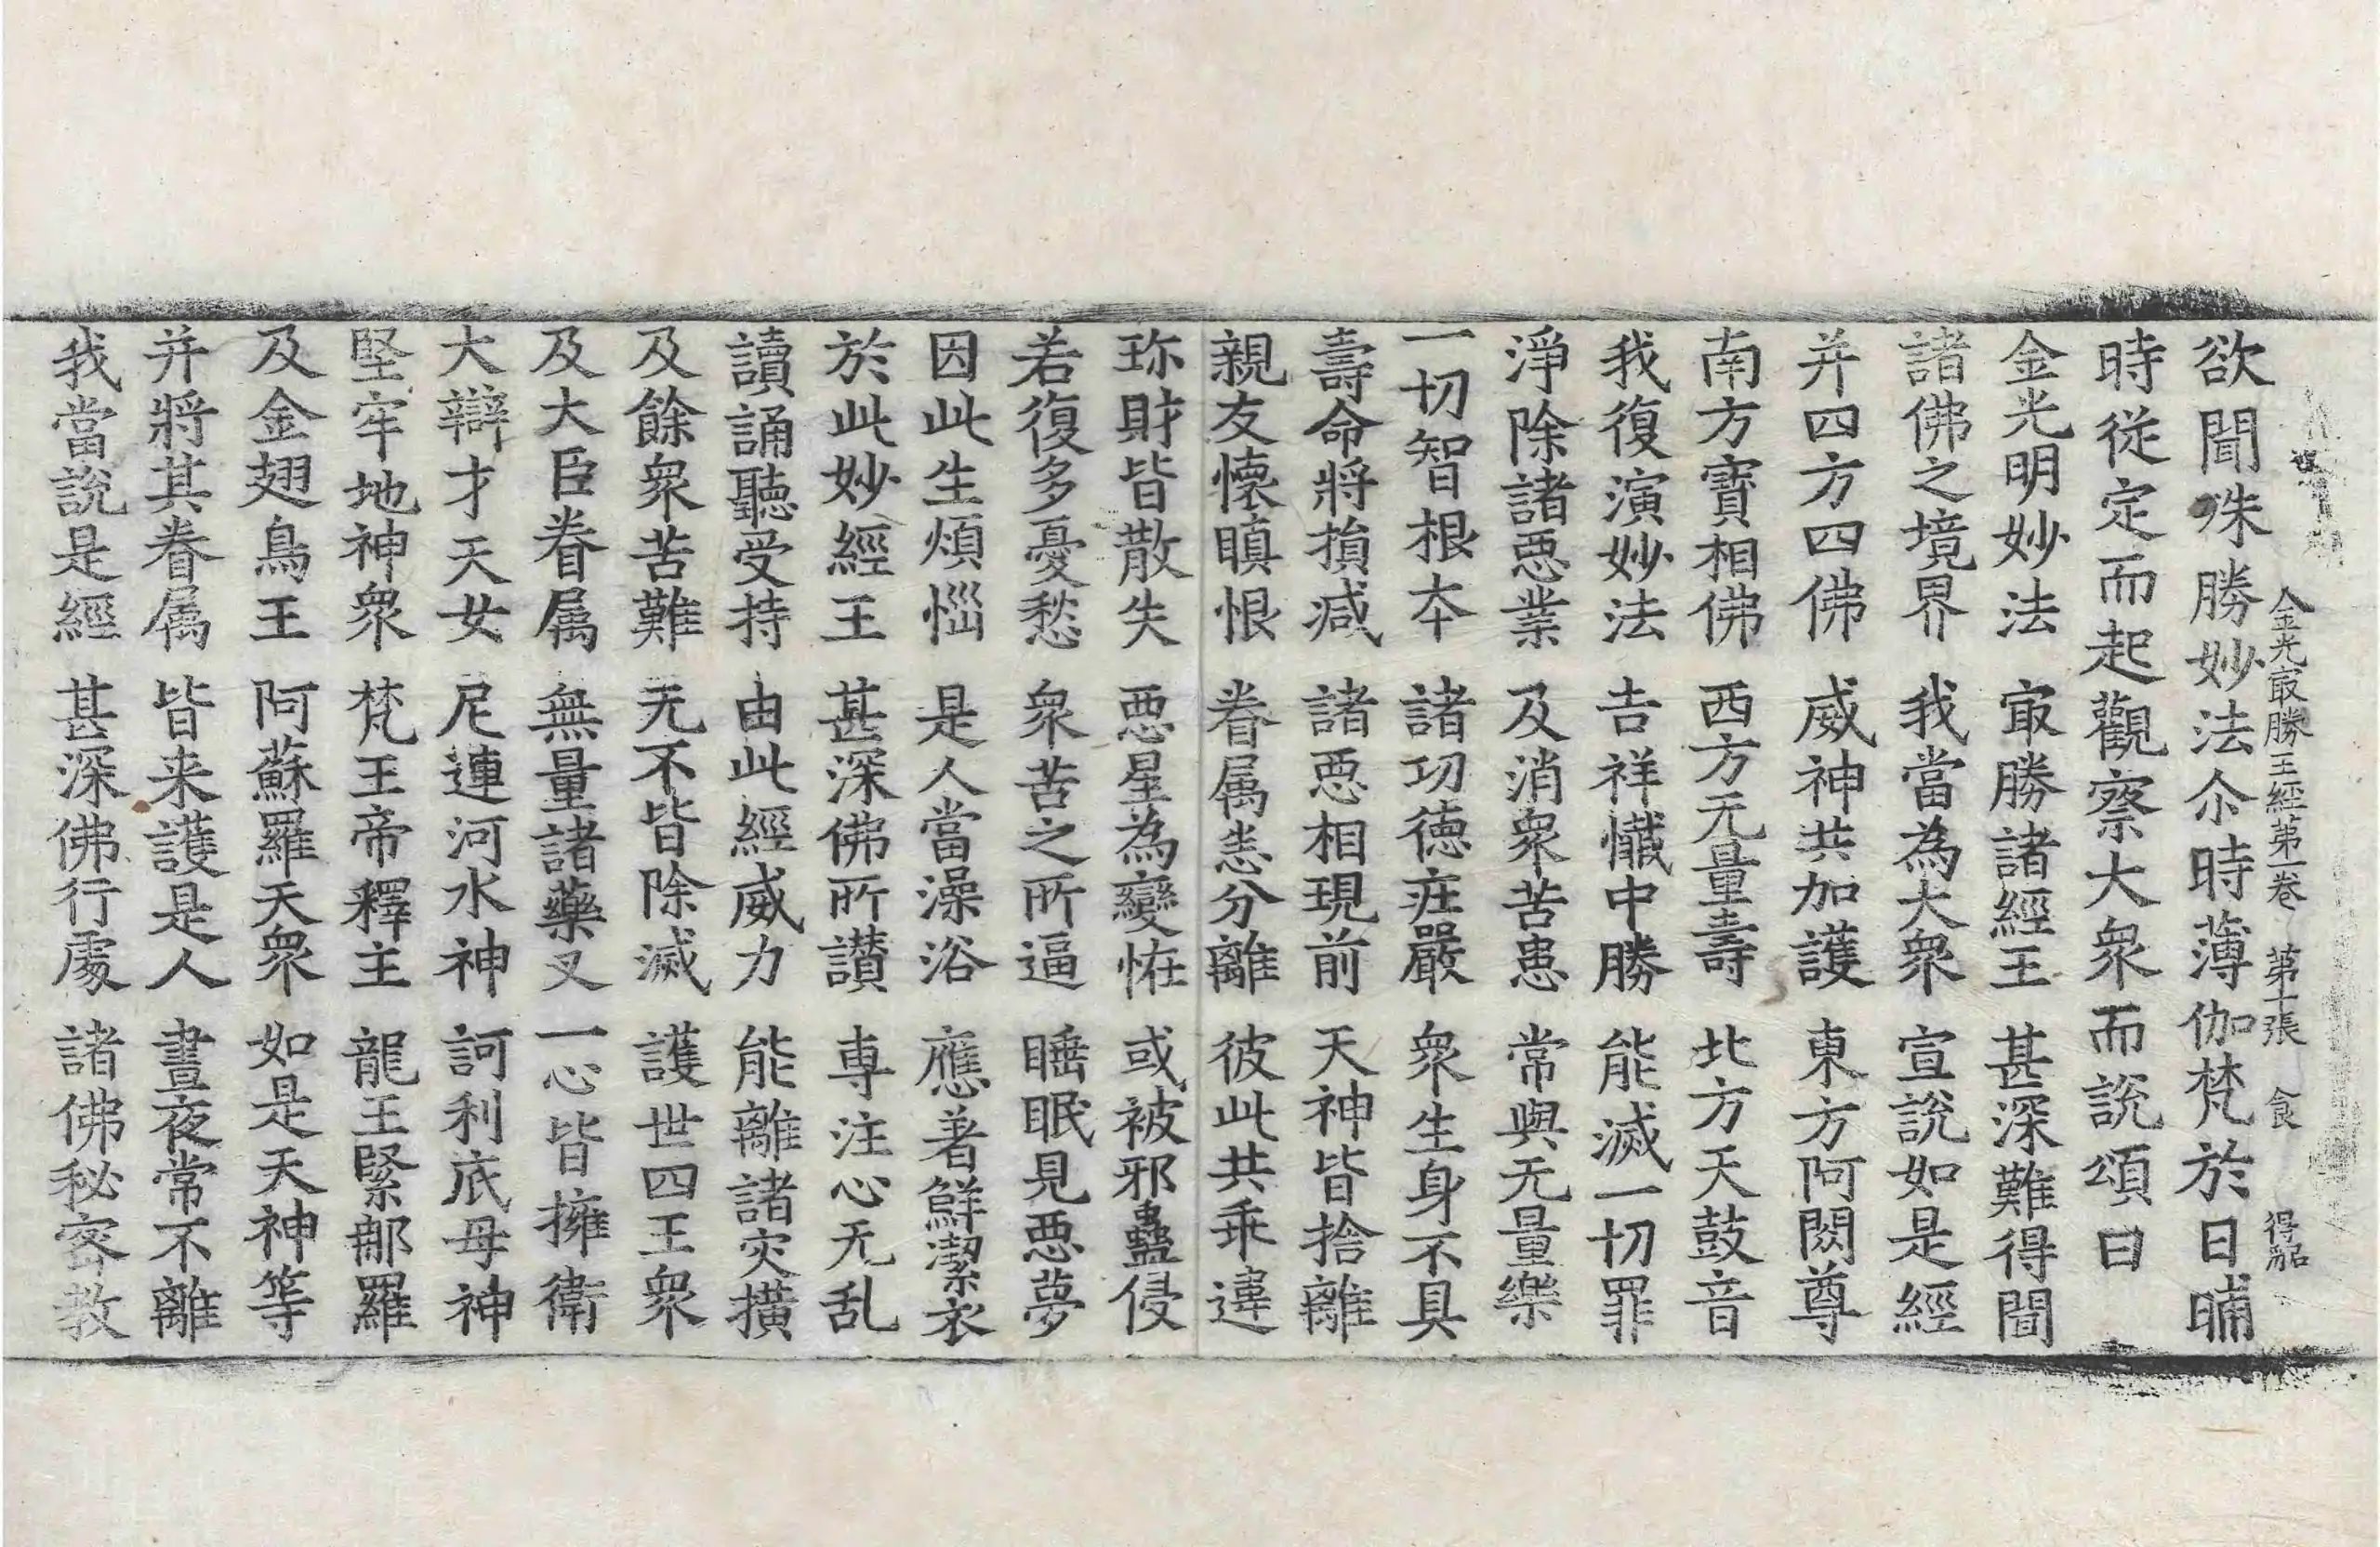 金光㝡勝王經第一卷 第十張 食 得韶
欲聞殊勝妙法尒時薄伽梵於日晡
時從定而起觀察大衆而說頌曰
金光明妙法 㝡勝諸經王 甚深難得聞
諸佛之境界 我當為大衆 宣說如是經
并四方四佛 威神共加護 東方阿閦尊
南方寶相佛 西方无量壽 北方天鼓音
我復演妙法 吉祥懺中勝 能滅一切罪
淨除諸惡業 及消衆苦患 常與无量樂
一切智根本 諸功德莊嚴 衆生身不具
壽命將損減 諸惡相現前 天神皆捨離
親友懷瞋恨 眷属恙分離 彼此共乖違
珎財皆散失 惡星為變恠 或被邪蠱侵
若復多憂愁 衆苦之所逼 睡眠見惡夢
因此生煩惱 是人當澡浴 應著鮮潔衣
於此妙經王 甚深佛所讃 専注心无乱
讀誦聽受持 由此經威力 能離諸灾橫
及餘衆苦難 无不皆除滅 護世四王衆
及大臣眷属 無量諸藥叉 一心皆擁衛
大辯才天女 尼連河水神 訶利底母神
堅牢地神衆 梵王帝釋主 龍王緊那羅
及金翅鳥王 阿蘇羅天衆 如是天神等
并將其眷属 皆来護是人 晝夜常不離
我當說是經 甚深佛行處 諸佛秘密教